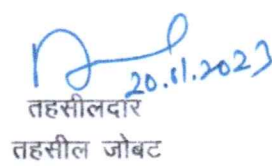 20.11.2023
तहसीलदार
तहसील जोबट